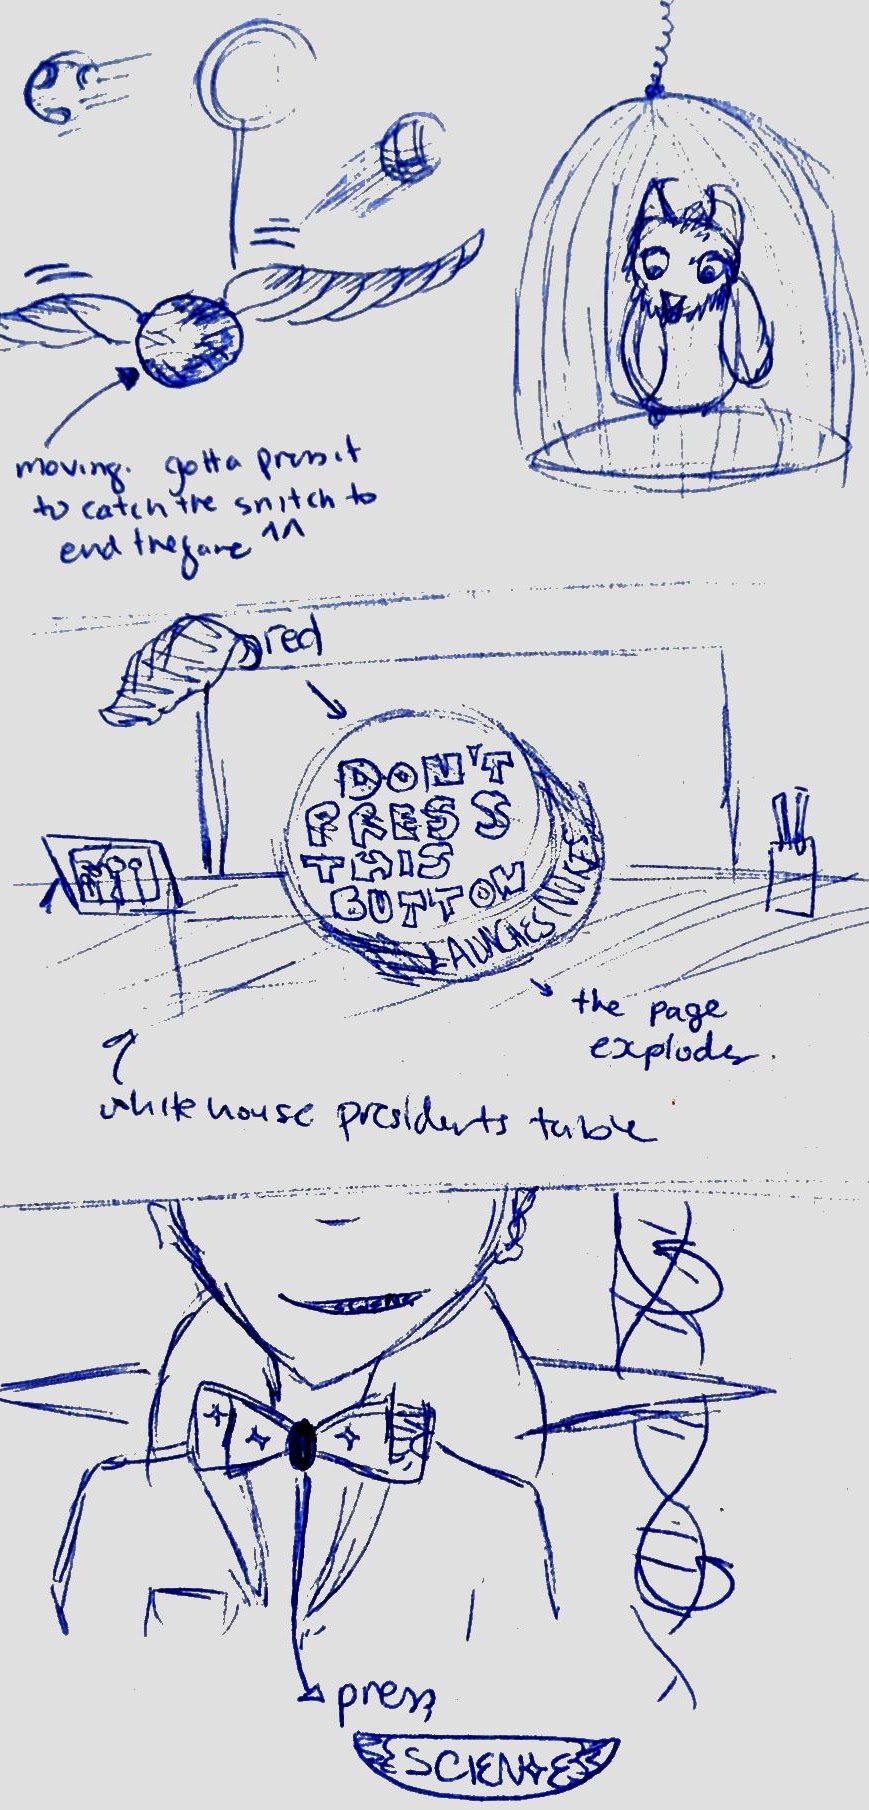 moving. gotta press it
to catch the snitch to
end the game ^^
red
DON'T
PRESS
THIS
BUTTON
LAUNCHES NUKES
the page
explodes.
white house presidents table
press
SCIENCE